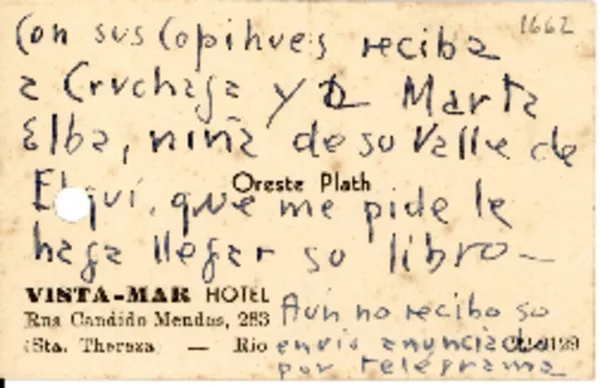 1662
Con sus Copihues reciba
a Cruchaga y a Marta
Elba, niña de su Valle de
Oreste Plath
Elqui, que me pide le
haga llegar su libro—
VISTA-MAR HOTEL
Rua Candido Mendes, 283
(Sta. Thereza) — Rio
Aún no recibo su
envío anunciado
por telégrama